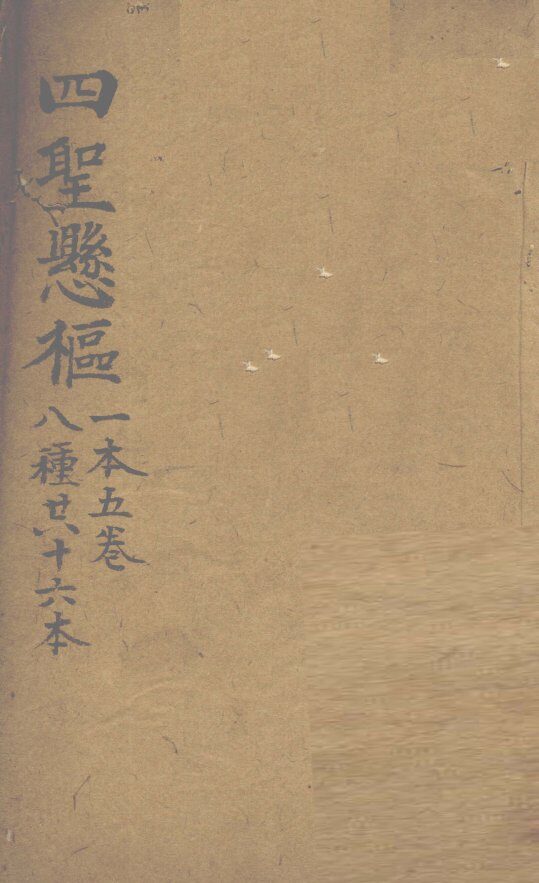 四聖懸樞
一本五卷
八種廿六十六本